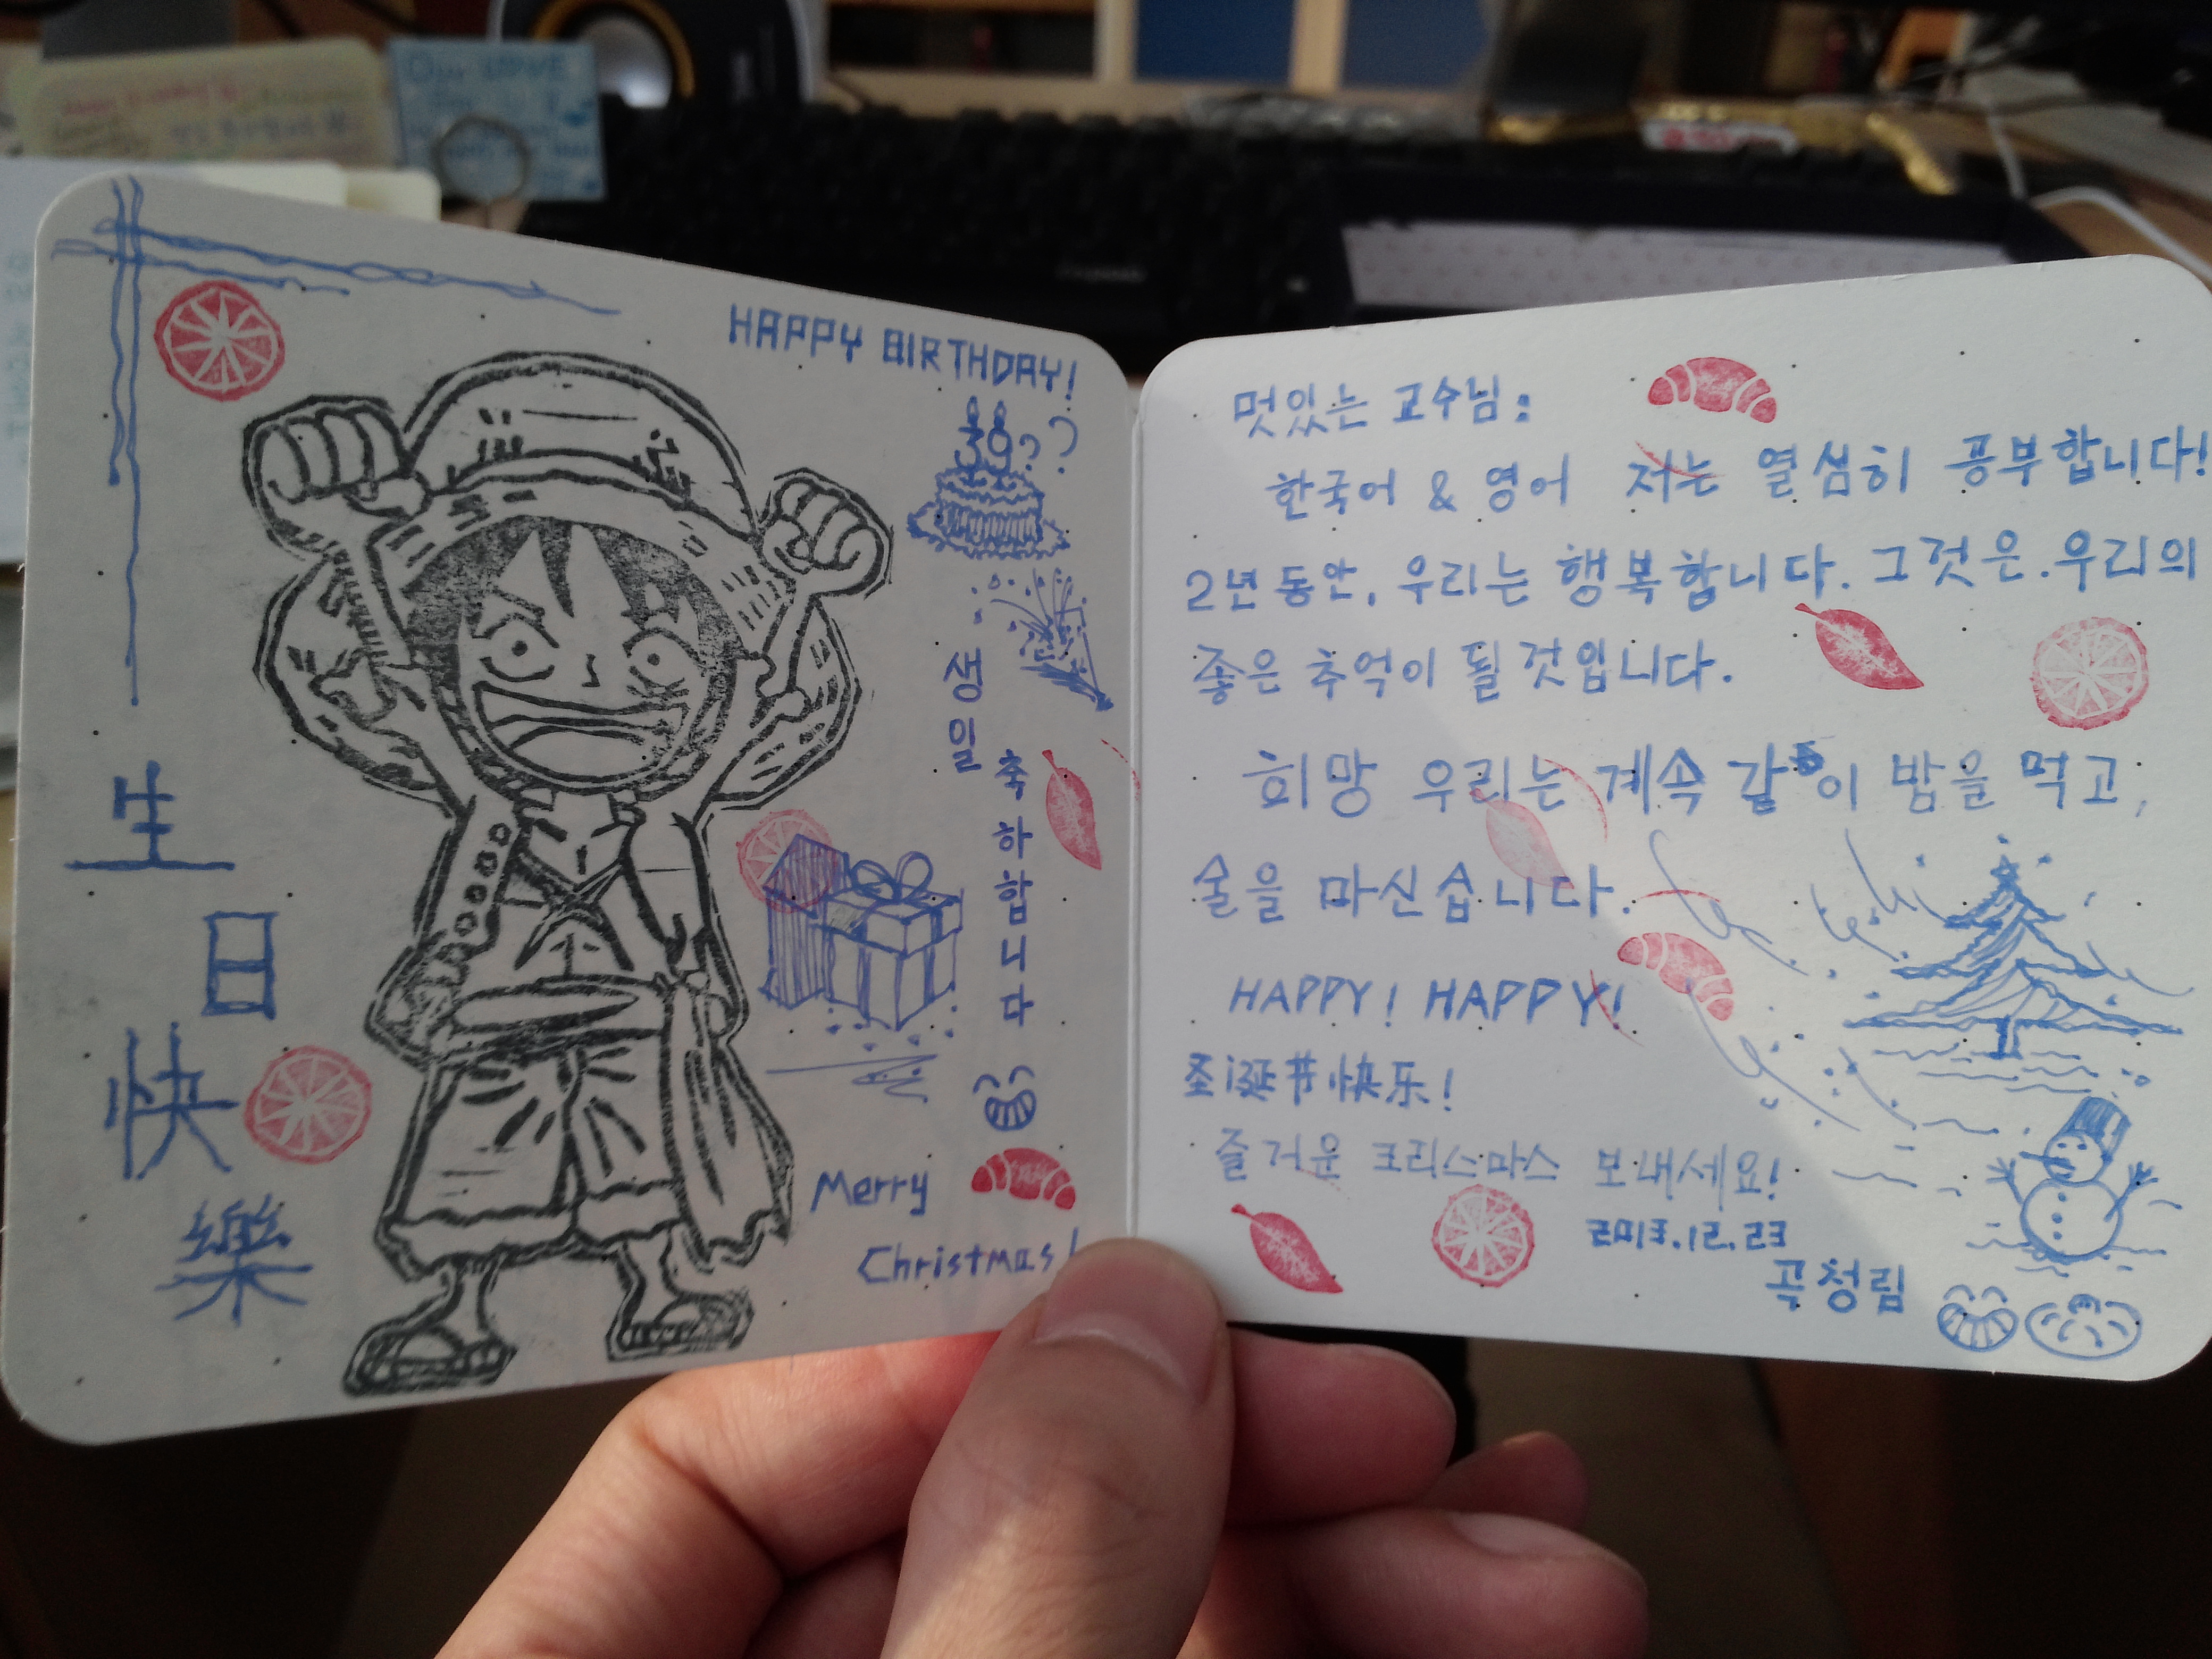 HAPPY BIRTHDAY!
??
생일
축하합니다
生日快樂
Merry
Christmas!
멋있는 교수님:
한국어 & 영어 저는 열심히 공부합니다!
2년 동안, 우리는 행복합니다. 그것은.우리의
좋은 추억이 될 것입니다.
희망 우리는 계속 같이 밥을 먹고,
술을 마신습니다.
HAPPY! HAPPY!
圣诞节快乐!
즐거운 크리스마스 보내세요!
2013.12.23
곡청림